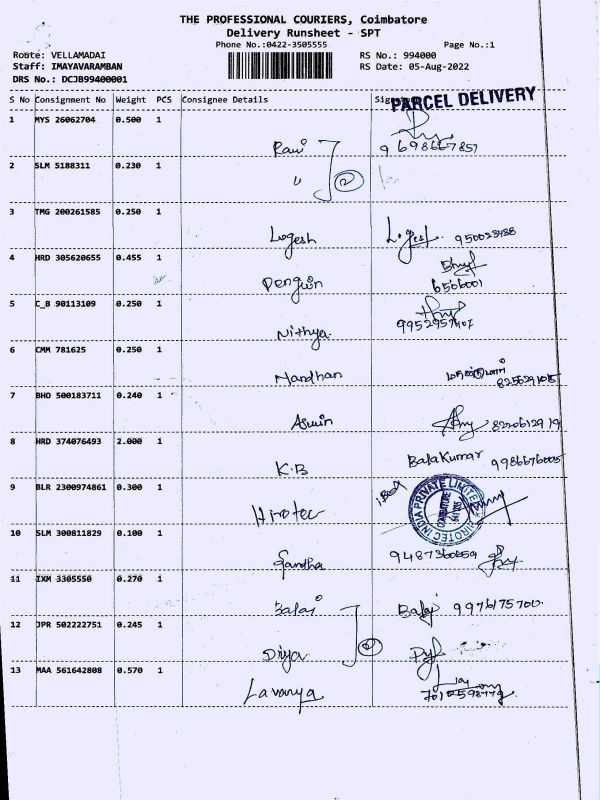 THE PROFESSIONAL COURIERS, Coimbatore
Delivery Runsheet - SPT
Phone No.:0422-3505555 Page No.:1
Route: VELLAMADAI RS No.: 994000
Staff: IMAYAVARAMBAN RS Date: 05-Aug-2022
DRS No.: DCJB99400001
S No Consignment No Weight PCS Consignee Details
PARCEL DELIVERY
1 MYS 26062704 0.500 1
Ravi 9698667857
2 SLM 5188311 0.230 1
" 2
3 TMG 200261585 0.250 1
Logesh Logesh
4 HRD 305620655 0.455 1
Penguin 6506001
5 C_B 90113109 0.250 1
Nithya
6 CMM 781625 0.250 1
Nandhan
7 BHO 500183711 0.240 1
Aswin
8 HRD 374076493 2.000 1
K.B BalaKumar 9986676005
9 BLR 2300974861 0.300 1
Hirotec
HIROTEC INDIA PRIVATE LIMITED
COIMBATORE
10 SLM 300811829 0.100 1
Santha 9487360059
11 IXM 3305550 0.270 1
Balaj Balaj 9976175700
12 JPR 502222751 0.245 1
Diya 2
13 MAA 561642808 0.570 1
Lavanya